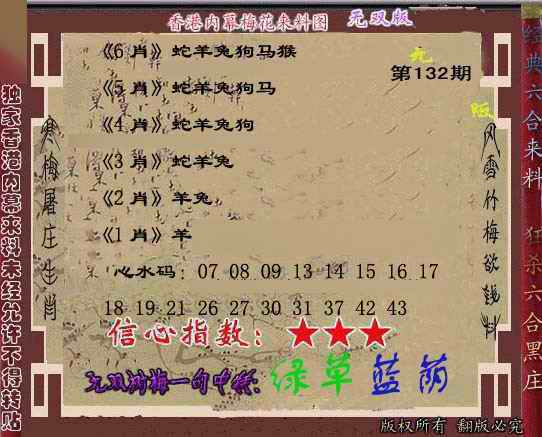 香港内幕梅花来料图 无双版
《6 肖》蛇羊兔狗马猴
无
第132期
《5 肖》蛇羊兔狗马
版
《4 肖》蛇羊兔狗
《3 肖》蛇羊兔
《2 肖》羊兔
《1 肖》羊
心水码: 07 08 09 13 14 15 16 17
18 19 21 26 27 30 31 37 42 43
信心指数: ★★★
无双鸿梅一句中特:绿草蓝荫
独家香港内幕来料未经允许不得转贴
寒梅屠庄生肖
风雪竹梅欲钱料
经典六合来料
狂杀六合黑庄
版权所有 翻版必究